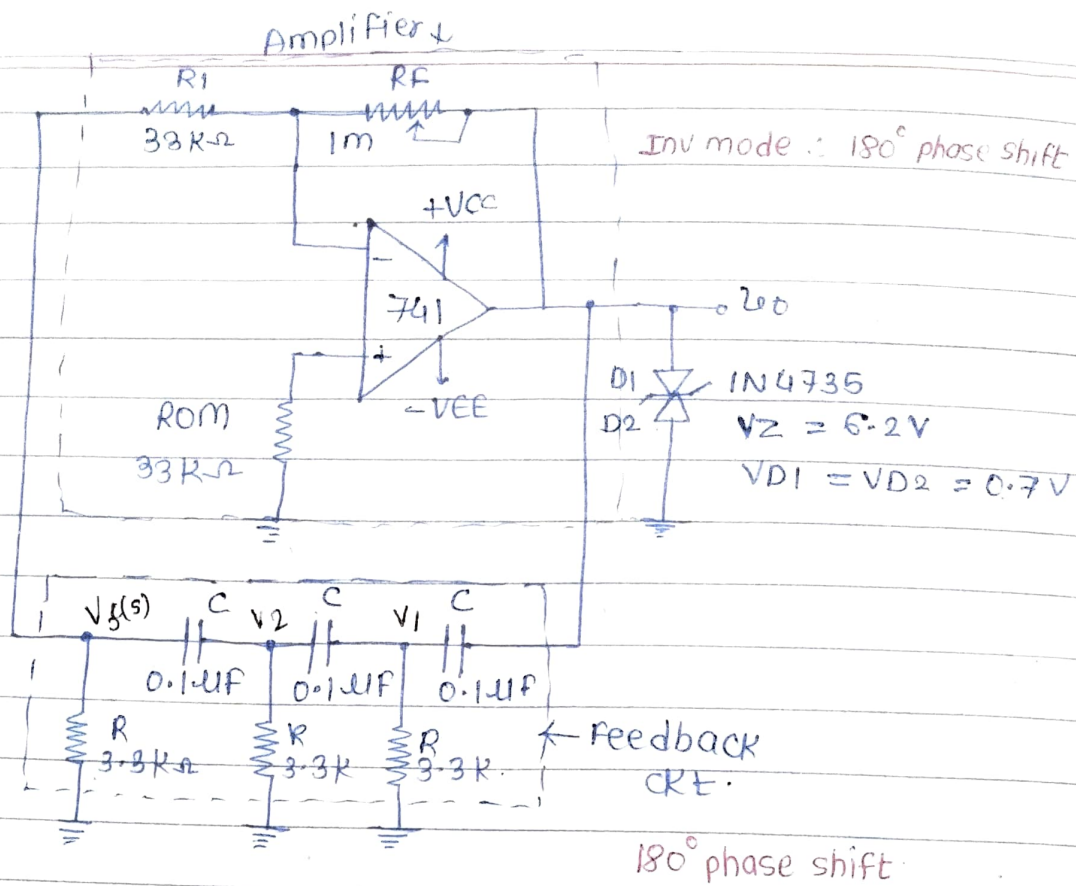 Amplifier
R1
RF
33KΩ
1m
Inv mode : 180° phase shift
+VCC
-
741
+
-VEE
ROM
33KΩ
D1
D2
IN4735
VZ = 6.2V
VD1 = VD2 = 0.7V
Vf(s)
C
V2
C
V1
C
0.1μF
0.1μF
0.1μF
R
3.3KΩ
R
3.3K
R
3.3K
← Feedback
CKt.
180° phase shift